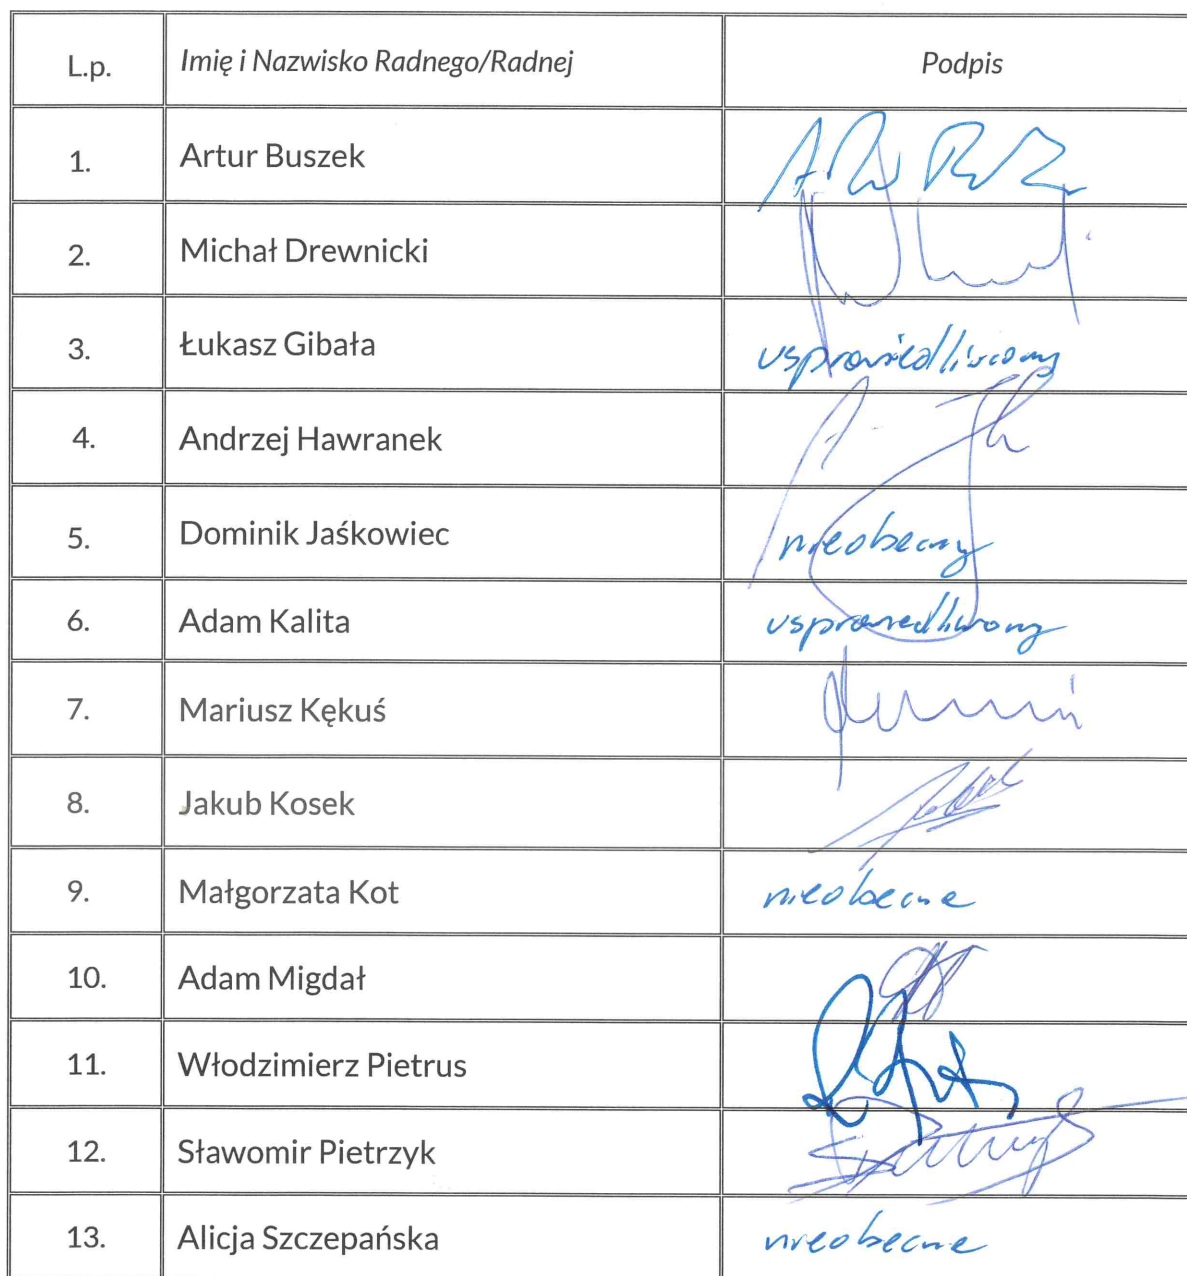 L.p. Imię i Nazwisko Radnego/Radnej Podpis
1. Artur Buszek
2. Michał Drewnicki
3. Łukasz Gibała usprawiedliwiony
4. Andrzej Hawranek
5. Dominik Jaśkowiec nieobecny
6. Adam Kalita usprawiedliwiony
7. Mariusz Kękuś
8. Jakub Kosek
9. Małgorzata Kot nieobecna
10. Adam Migdał
11. Włodzimierz Pietrus
12. Sławomir Pietrzyk
13. Alicja Szczepańska nieobecna